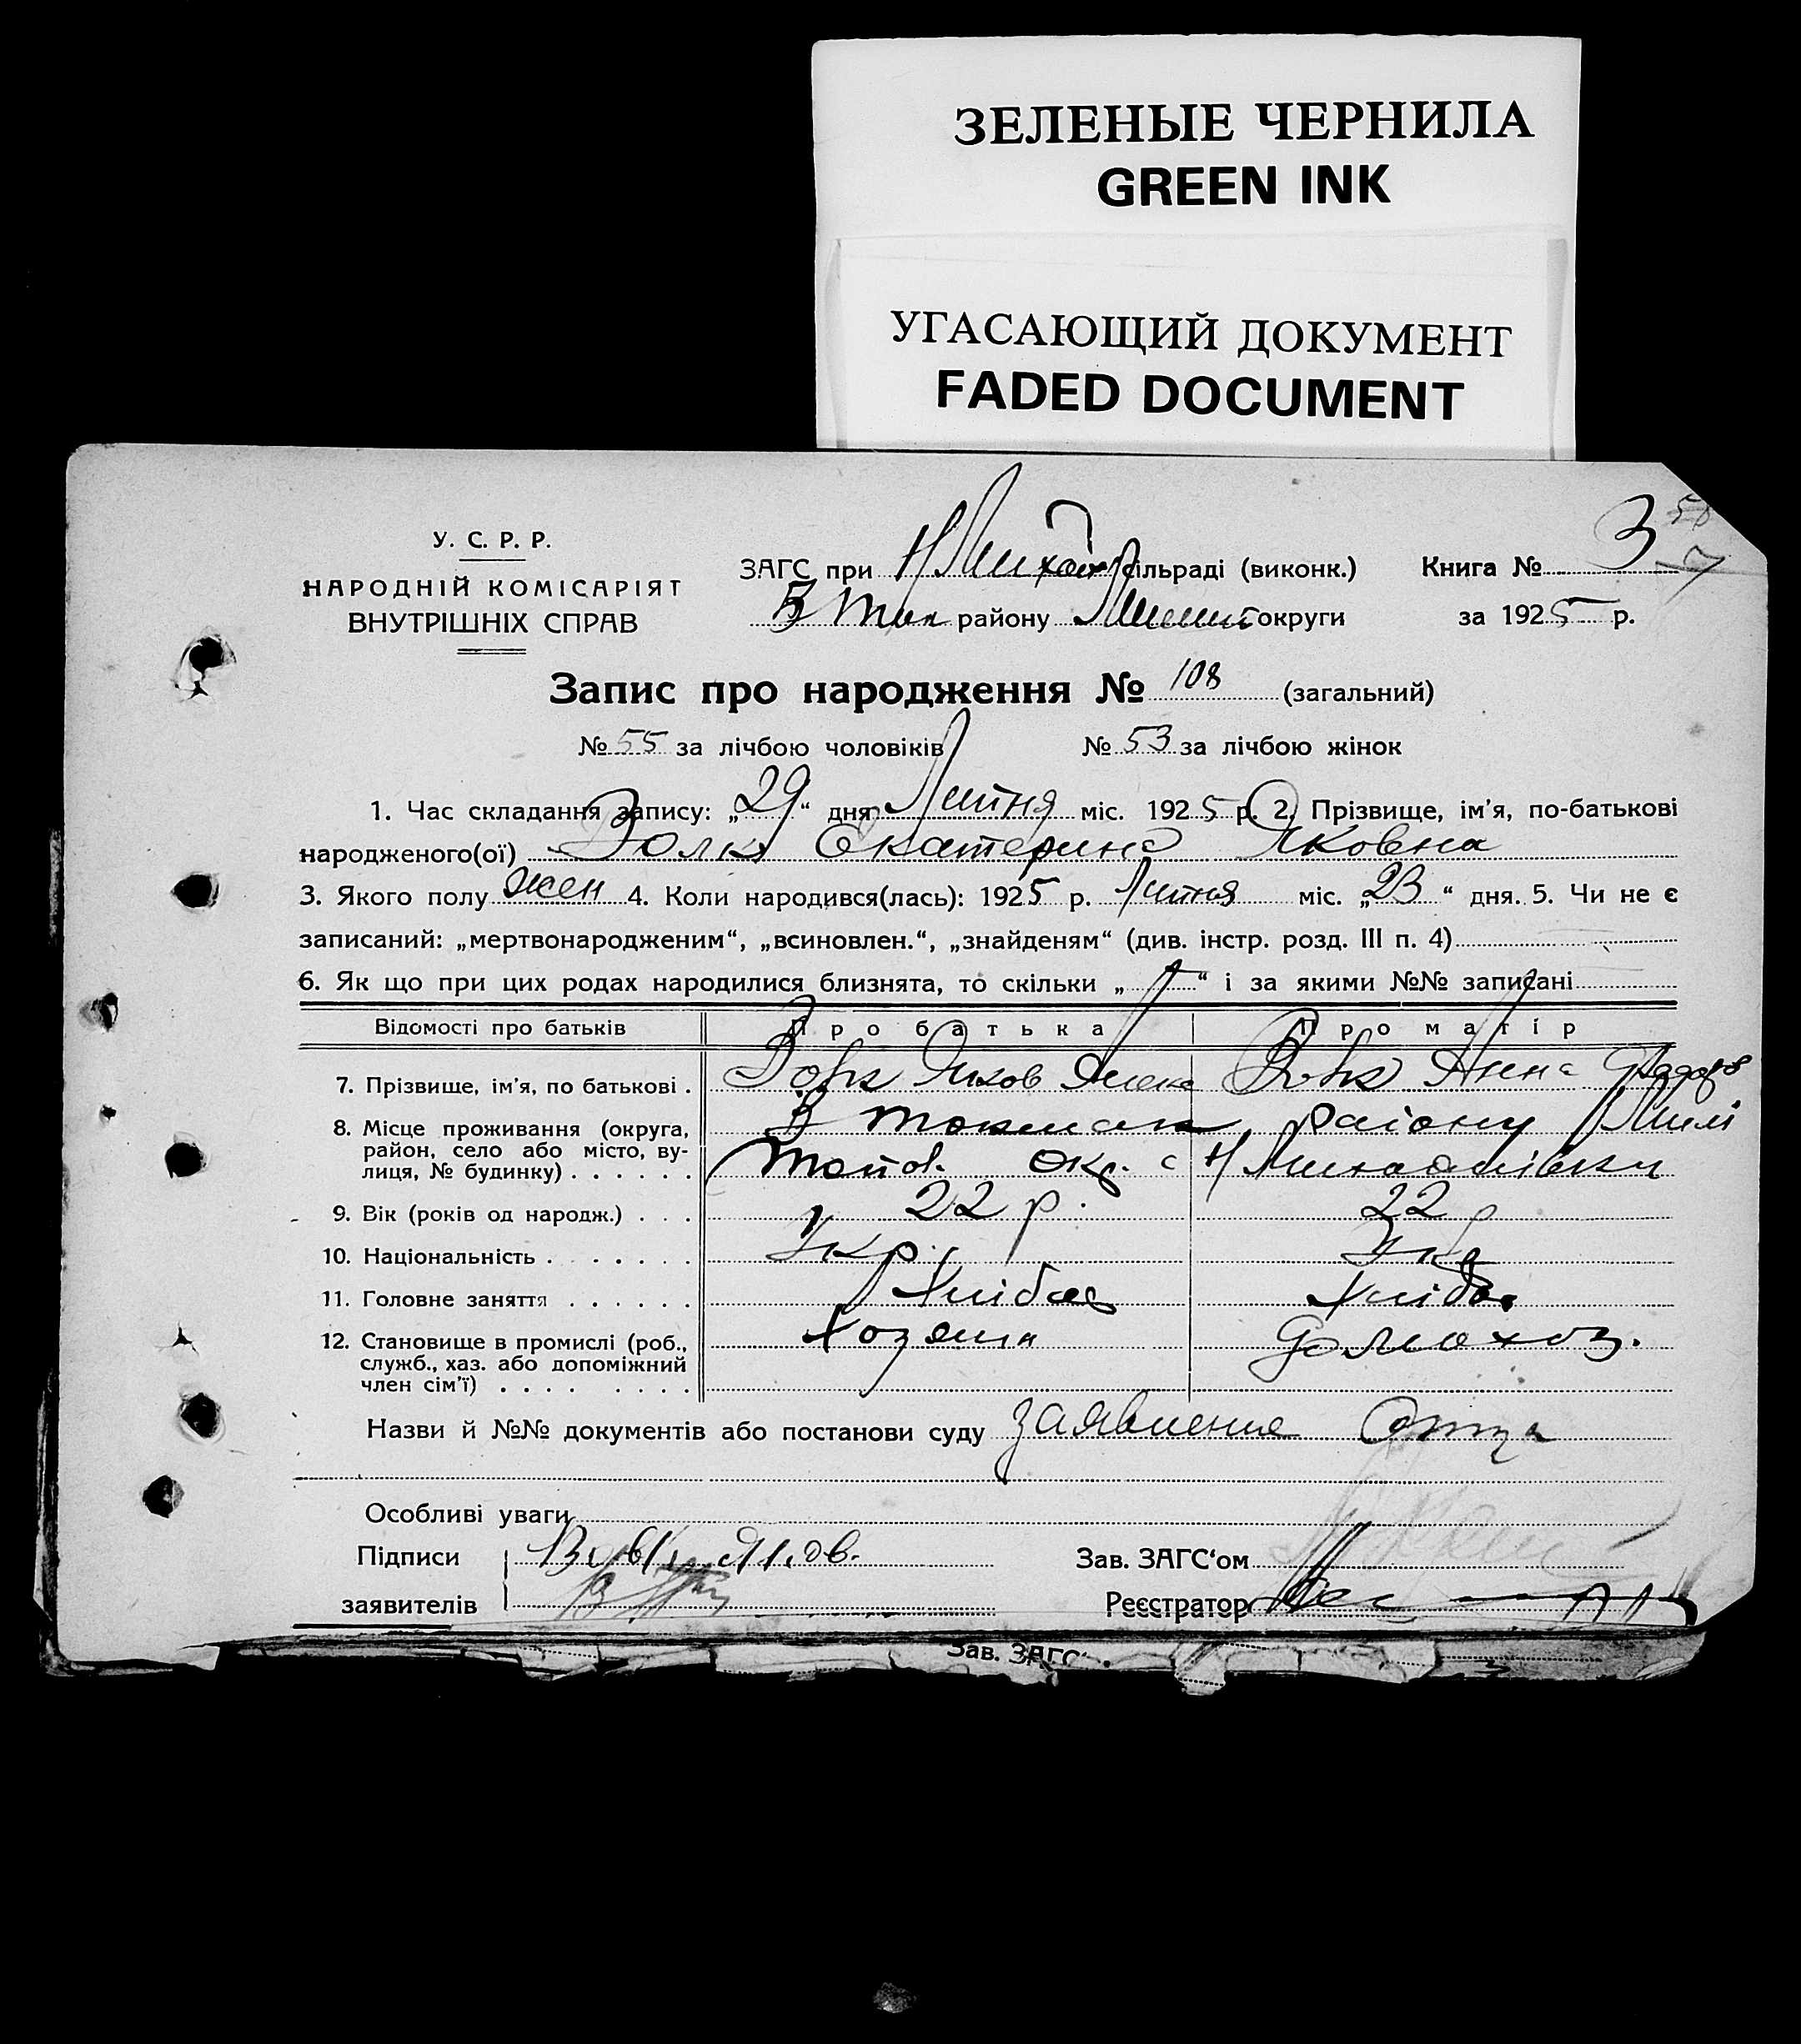 ЗЕЛЕНЫЕ ЧЕРНИЛА
GREEN INK
УГАСАЮЩИЙ ДОКУМЕНТ
FADED DOCUMENT
У. С. Р. Р.
НАРОДНІЙ КОМІСАРІЯТ
ВНУТРІШНІХ СПРАВ
ЗАГС при Н Михай сільраді (виконк.) Книга № 3
В Ток району округи за 1925 р.
Запис про народження № 108 (загальний)
№ 55 за лічбою чоловіків № 53 за лічбою жінок
1. Час складання запису: „29“ дня Липня міс. 1925 р. 2. Прізвище, ім'я, по-батькові
народженого(ої) Волк Екатерина Яковна
3. Якого полу жен 4. Коли народився(лась): 1925 р. Липня міс. „23“ дня. 5. Чи не є
записаний: „мертвонародженим“, „всиновлен.“, „знайденям“ (див. інстр. розд. III п. 4)
6. Як що при цих родах народилися близнята, то скільки „ “ і за якими №№ записані
Відомості про батьків Про батька Про матір
7. Прізвище, ім'я, по батькові . Вовк Яков Вовк Анна
8. Місце проживання (округа, В Токмак району Мелі
район, село або місто, ву-
лиця, № будинку) . . . . . . топол. окр. с Н Михайлівки
9. Вік (років од народж.) . . . 22 р. 22 р
10. Національність . . . . . . . Укр. Укр
11. Головне заняття . . . . . . Хліб Хліб
12. Становище в промислі (роб., Хозяин Домохоз.
служб., хаз. або допоміжний
член сім'ї) . . . . . . . .
Назви й №№ документів або постанови суду заявление Отца
Особливі уваги
Підписи Вовк Яков. Зав. ЗАГС'ом
заявителів Реєстратор
Зав. ЗАГС